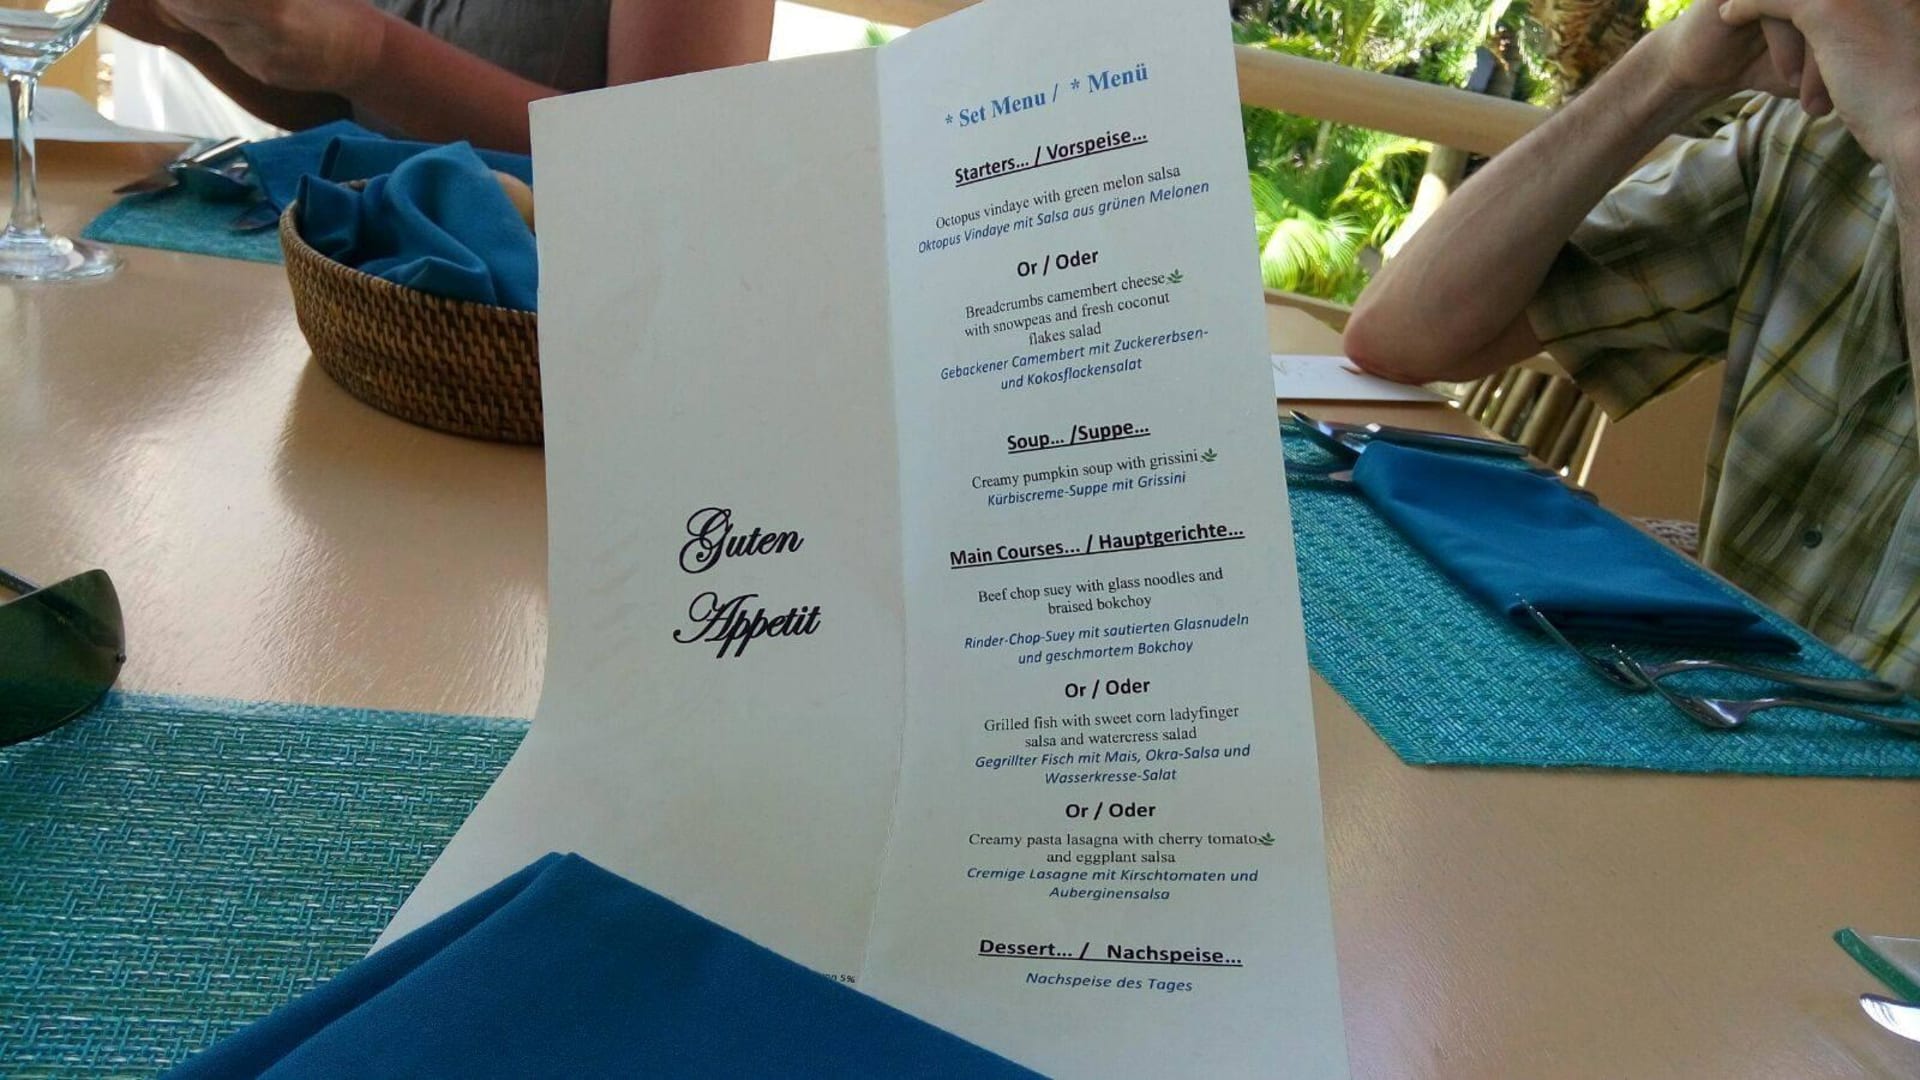 Guten
Appetit
* Set Menu / * Menü
Starters... / Vorspeise...
Octopus vindaye with green melon salsa
Oktopus Vindaye mit Salsa aus grünen Melonen
Or / Oder
Breadcrumbs camembert cheese
with snowpeas and fresh coconut
flakes salad
Gebackener Camembert mit Zuckererbsen-
und Kokosflockensalat
Soup... /Suppe...
Creamy pumpkin soup with grissini
Kürbiscreme-Suppe mit Grissini
Main Courses... / Hauptgerichte...
Beef chop suey with glass noodles and
braised bokchoy
Rinder-Chop-Suey mit sautierten Glasnudeln
und geschmortem Bokchoy
Or / Oder
Grilled fish with sweet corn ladyfinger
salsa and watercress salad
Gegrillter Fisch mit Mais, Okra-Salsa und
Wasserkresse-Salat
Or / Oder
Creamy pasta lasagna with cherry tomato
and eggplant salsa
Cremige Lasagne mit Kirschtomaten und
Auberginensalsa
Dessert... / Nachspeise...
Nachspeise des Tages
5%